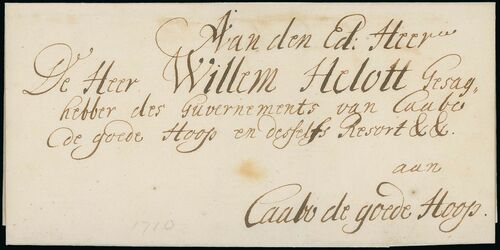 Aan den Ed: Heer
De Heer Willem Helott Gesag,,
hebber des Guvernements van Caabo
de goede Hoop en desselfs Resort &&.
aan
Caabo de goede Hoop.
1710